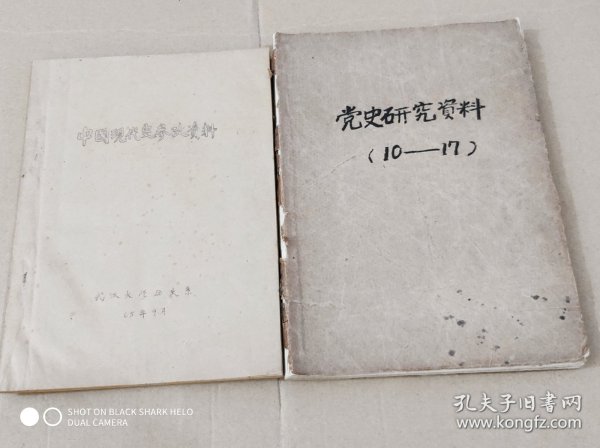 中國現代史参攷資料
武汉大学历史系
65年9月
党史研究资料
(10——17)
SHOT ON BLACK SHARK HELO
DUAL CAMERA
孔夫子旧书网
www.kongfz.com